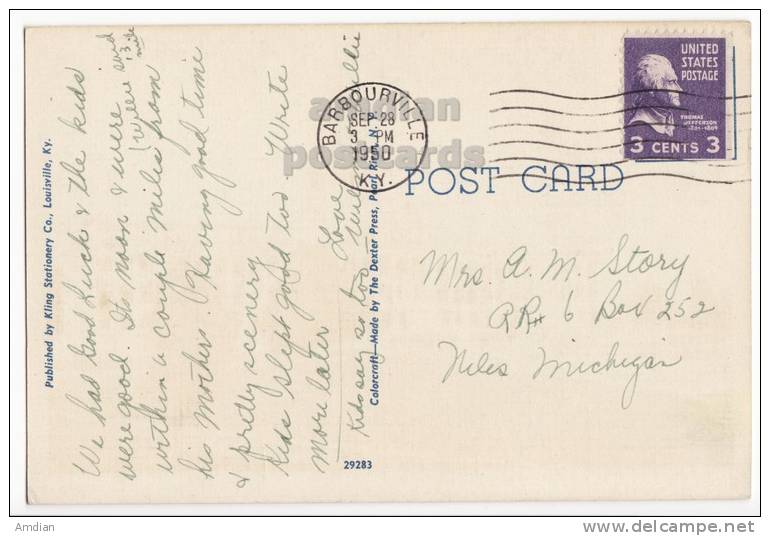 We had Good Luck & the kids
were good. Its noon & were
within a couple miles from
his mothers. Having good time
& pretty scenery
Kids slept good too. Write
more later
Love
Kids say so too
Published by Kling Stationery Co., Louisville, Ky.
Colorcraft—Made by The Dexter Press, Pearl River, N. Y.
29283
amdian
postcards
BARBOURVILLE
SEP 28
3 PM
1950
KY.
UNITED
STATES
POSTAGE
THOMAS
JEFFERSON
1801-1809
3 CENTS 3
POST CARD
Mrs. A. M. Story
RR# 6 Box 252
Niles Michigan
Amdian
http://www.delcampe.net